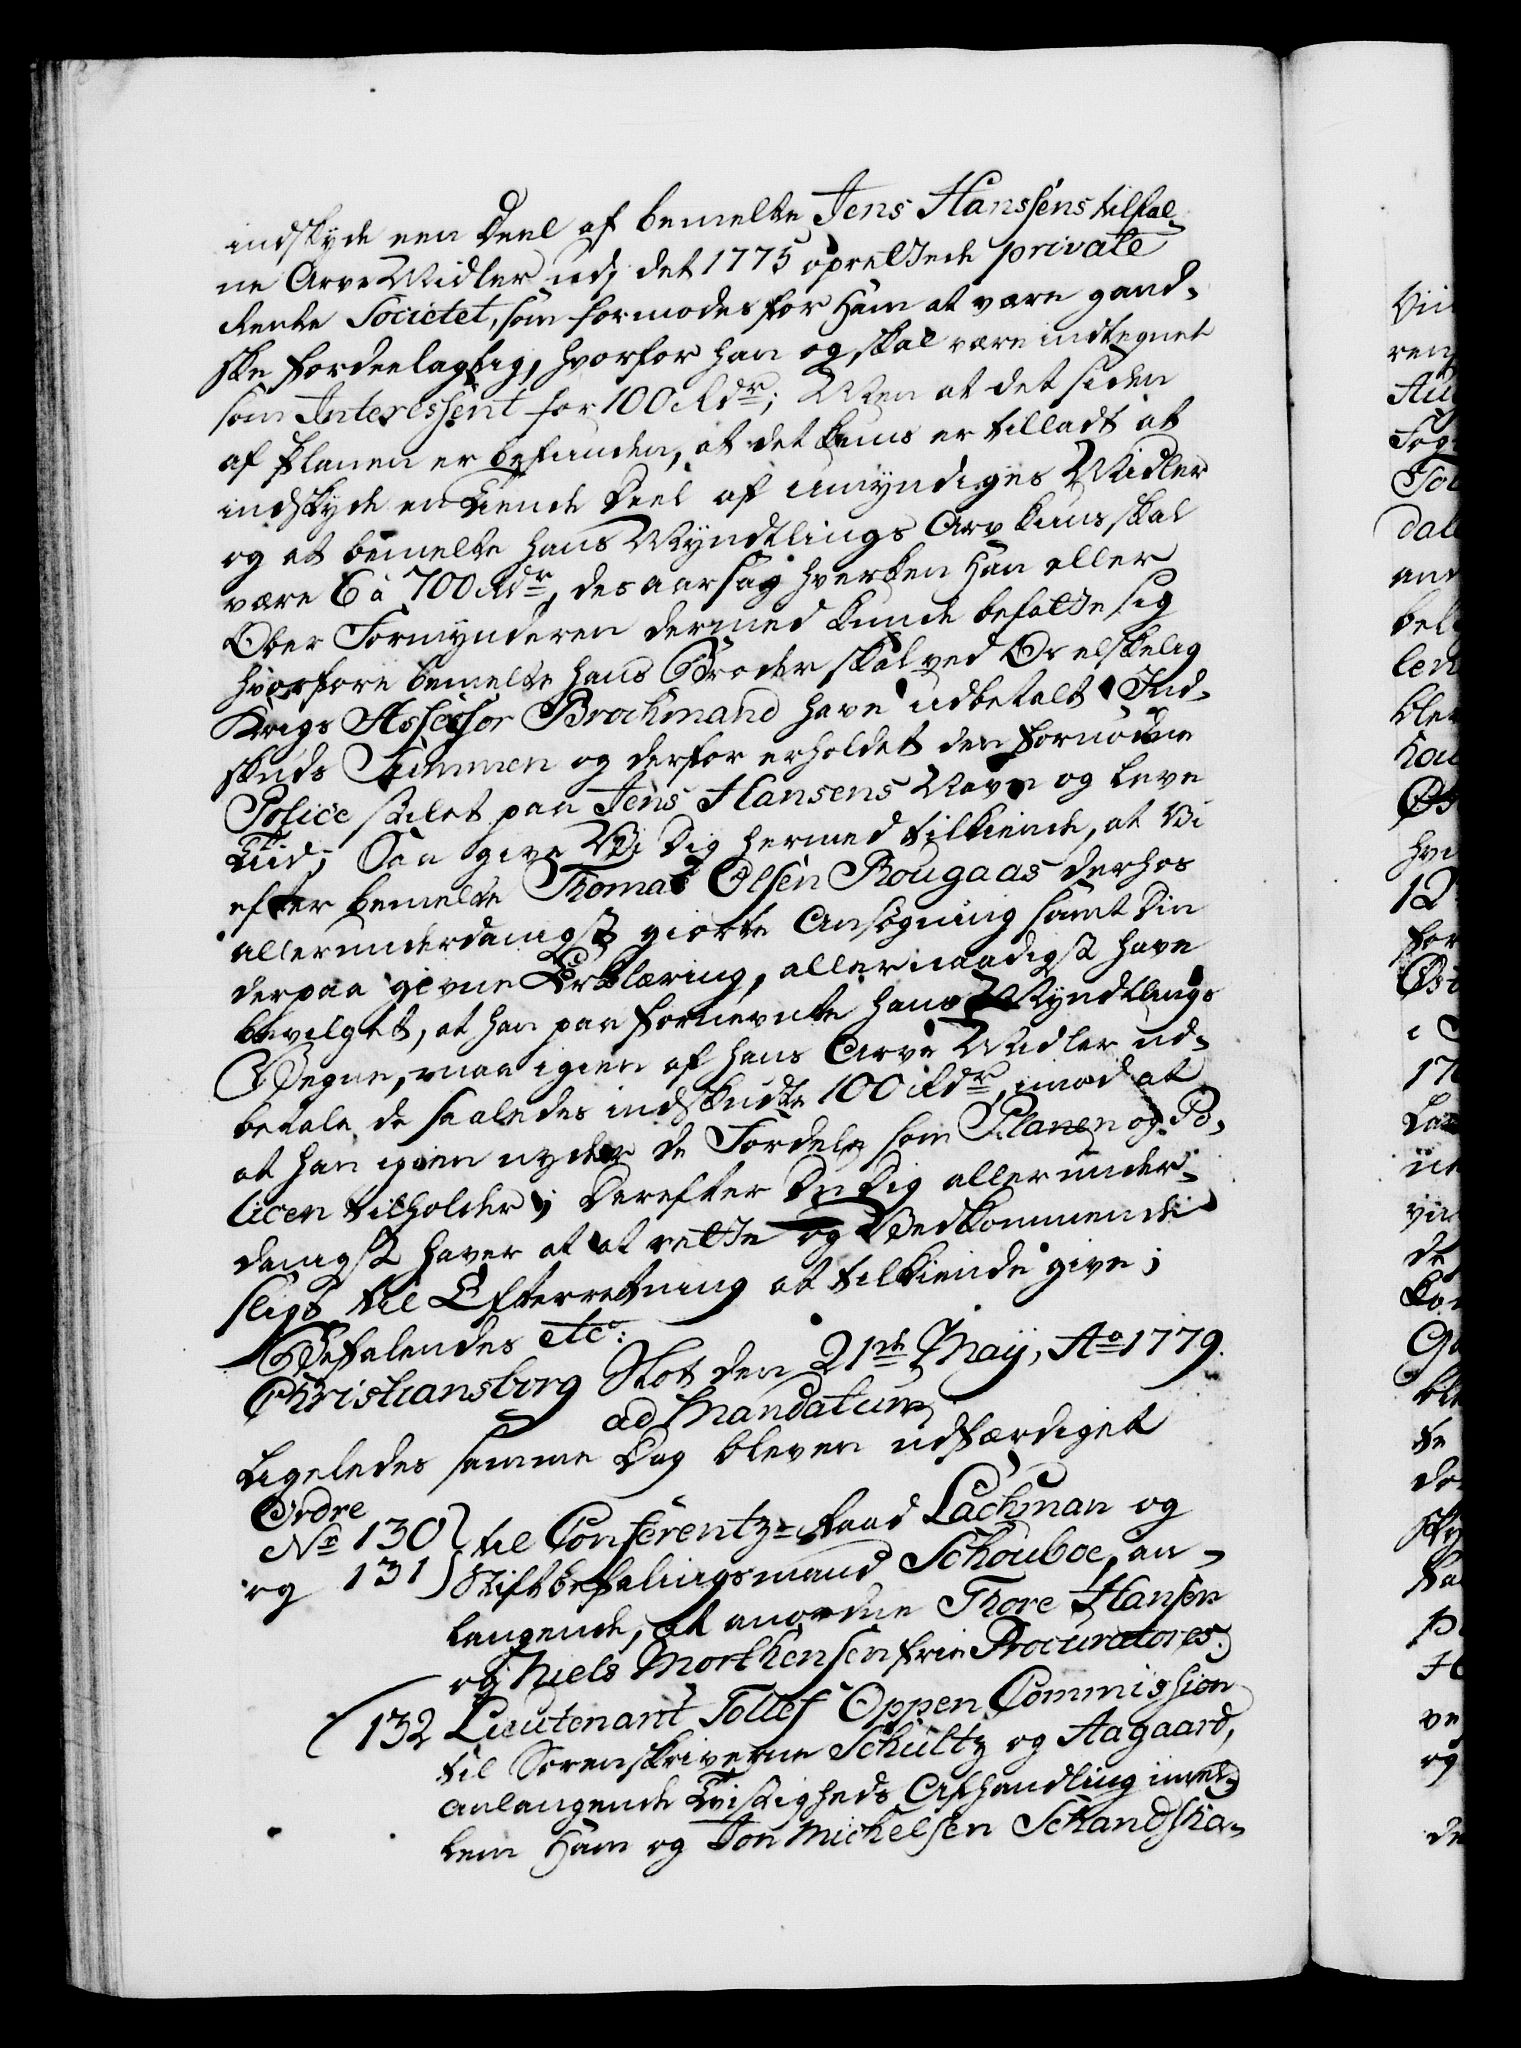 indskyde een Deel af bemelte Jens Hanssens tilfal-
ne Arve Midler udj det 1775 oprettede private
Rente Societet, som formodes for Ham at være gand-
ske fordeelagtig, hvorfor han og skal være indtegnet
som Interessent for 100 Rdr; Men at det siden
af Planen er befunden, at det kuns er tilladt at
indskyde en tiende Deel af umyndiges Midler
og at bemelte hans Myndtlings Arv kuns skal
være 6 à 700 Rdr, des aarsag hverken Han eller
Ober Formynderen dermed kunde befatte sig
hvorfore bemelte hans Broder skal ved Os elskelig
Krigs Assessor Brochmand have udbetalt Ind-
skuds Summen og derfor erholdet den fornødne
Police stilet paa Jens Hansens Navn og leve
Tiid; Saa give Vi Dig hermed tilkiende, at Vi
efter bemelte Thomas Olsen Rougaas derhos
allerunderdanigst giorte Ansøgning samt Din
derpaa givne Erklæring, allernaadigst have
bevilget, at han paa fornevnte hans Myndtlings
Vegne, maa igien af hans Arve Midler ud-
betale de saaledes indskudte 100 Rdr, imod at
at han igien nyder de Fordele som Planen og Po-
licen tilholder; Derefter Du Dig allerunder-
danigst haver at at rette og Vedkommende
sligt til Efterretning at tilkiende give;
Befalendes etc:
Christiansborg Slot den 21de Maij, Ao 1779.
ad Mandatum
Ligeledes samme Dag bleven udfærdiget
Ordre
No 130 til Conferentz-Raad Lachman og
og 131 Stiftbefalingsmand Schouboe, an-
langende, at anordne Thore Hansen
og Niels Morthensen frie Procuratores.
132 Lieutenant Tollef Oppen Commission
til Sorenskriverne Schultz og Aagaard,
anlangende Tvistigheds Afhandling imel-
lem Ham og Jon Michelsen Schandsha-